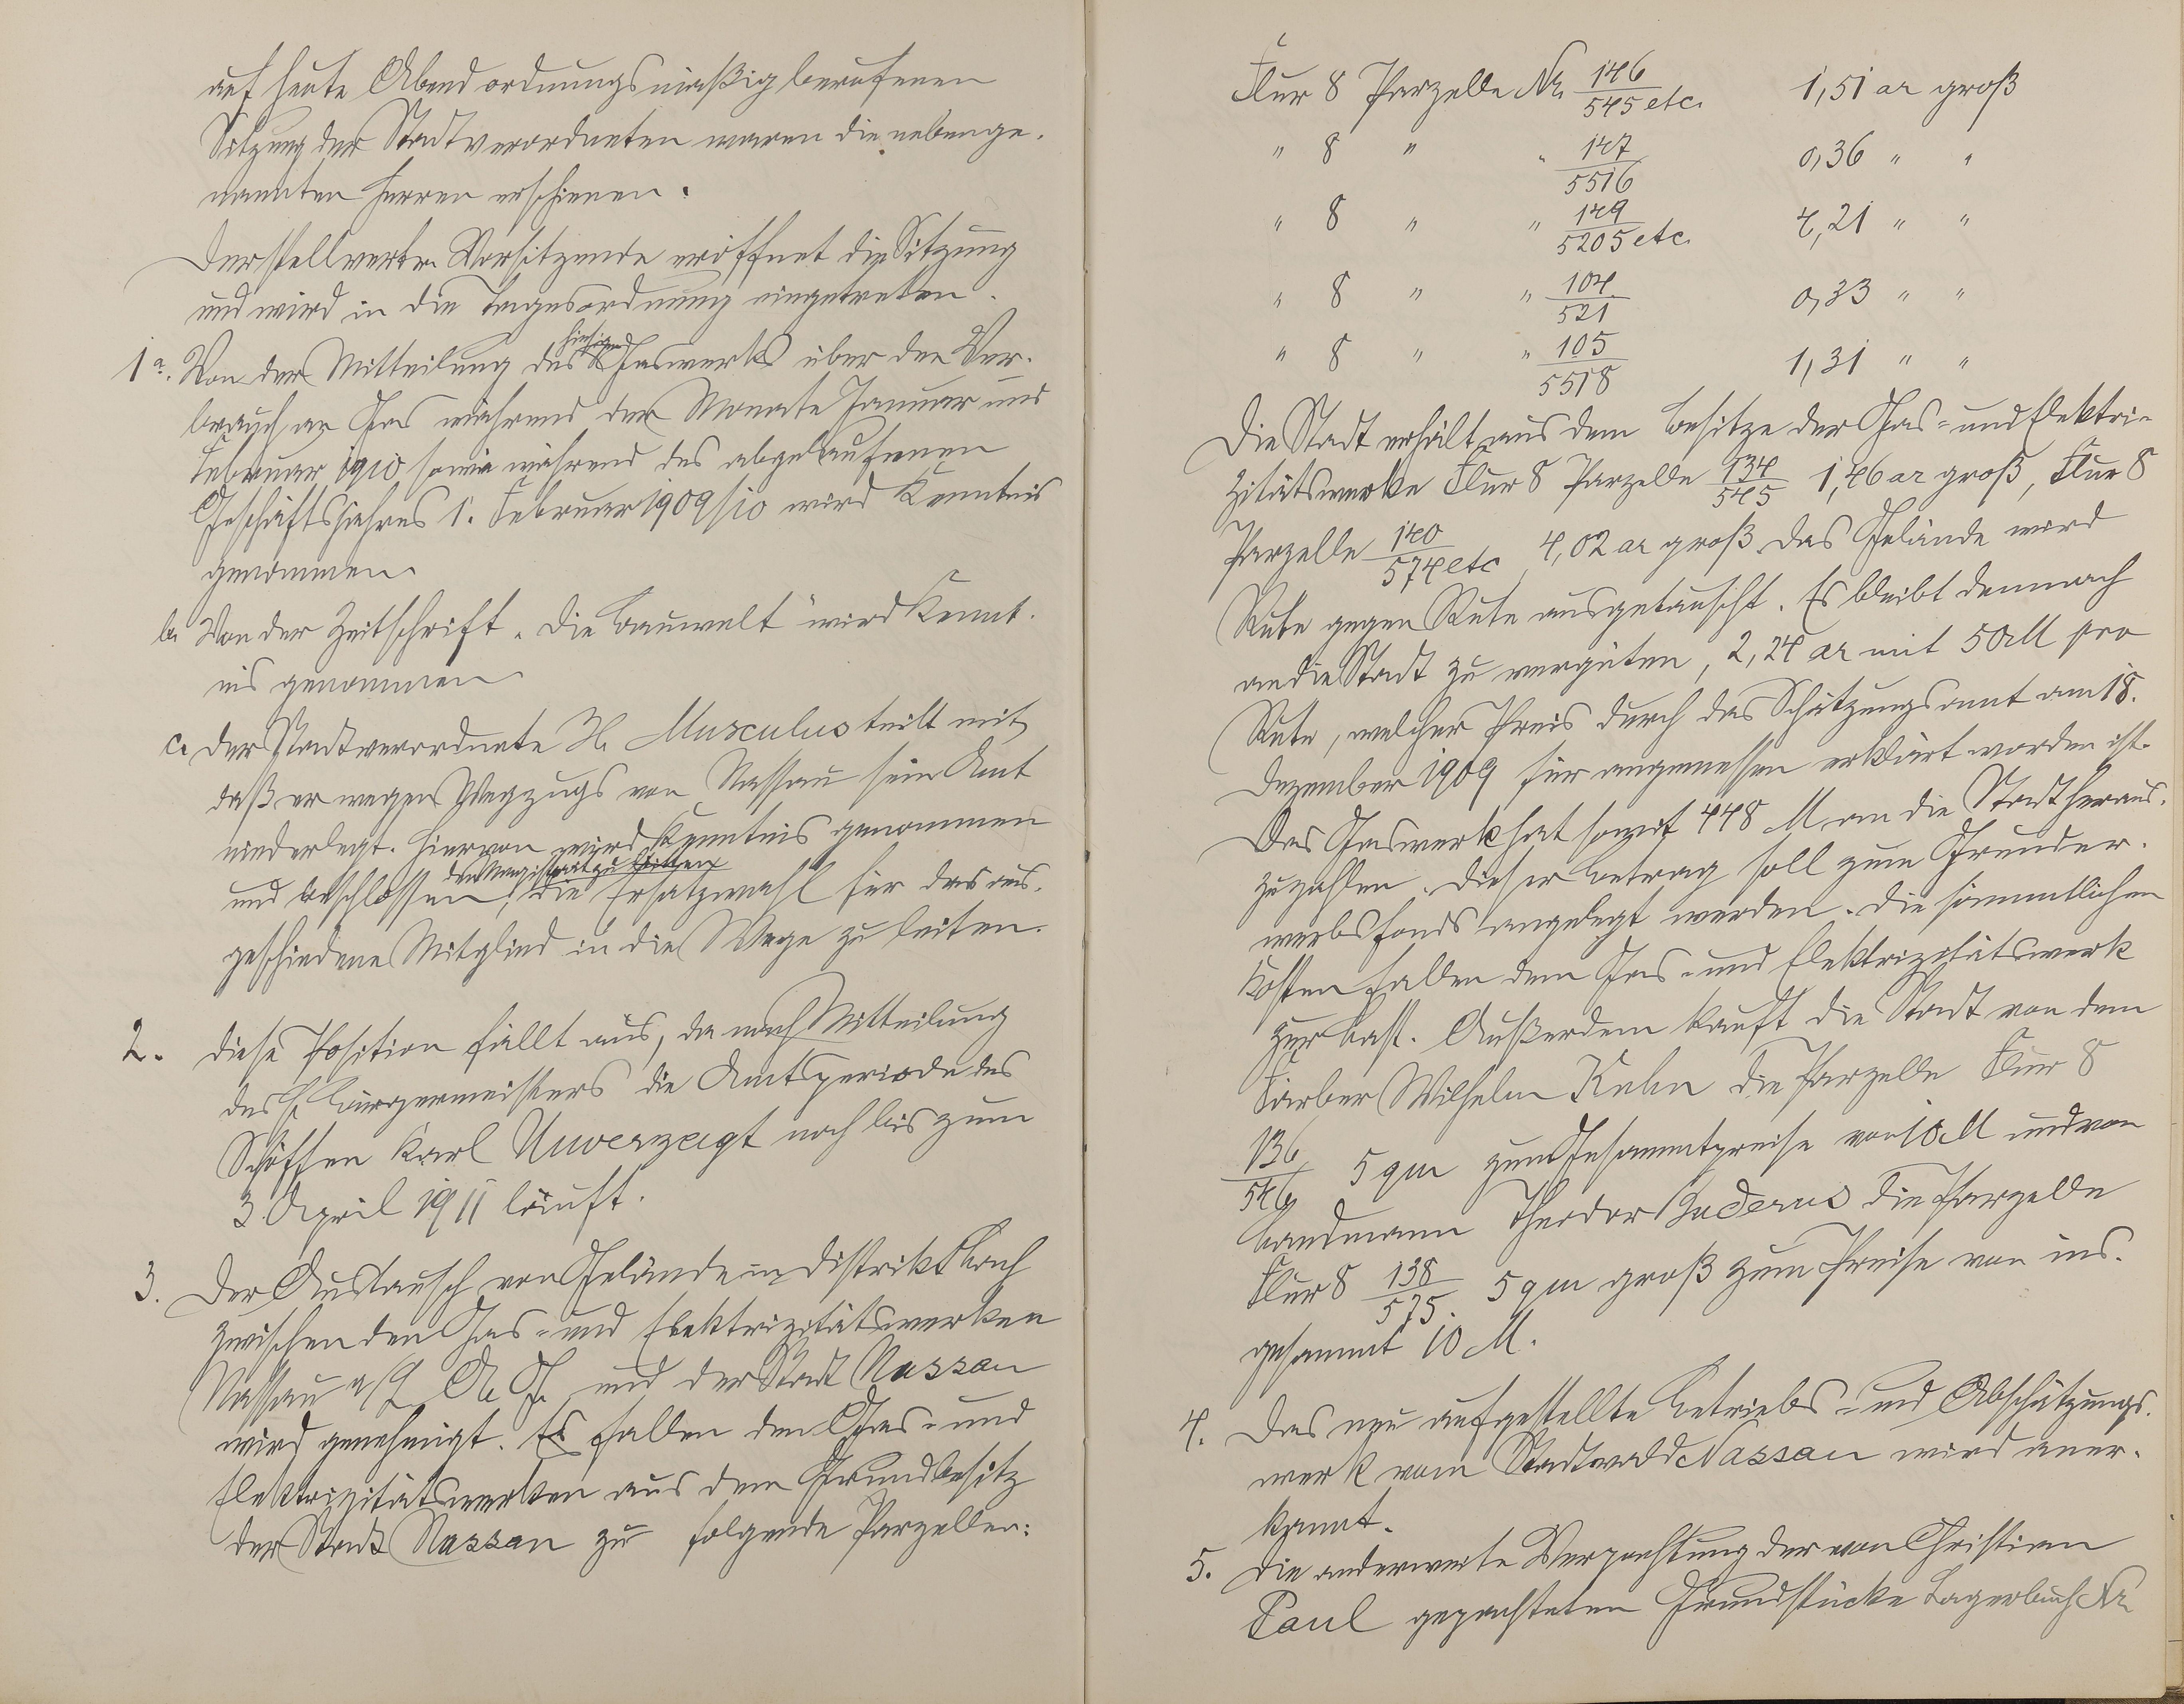 auf heute Abend ordnungsmäßig berufenen
Sitzung der Stadtverordneten waren die nebenge-
nannten Herren erschienen.
Der stellvertr. Vorsitzende eröffnet die Sitzung
und wird in die Tagesordnung eingetreten.
hiesigen
1a. Von der Mitteilung des Gaswerks über den Ver-
brauch an Gas während der Monate Januar und
Februar 1910 sowie während des abgelaufenen
Geschäftsjahres 1. Februar 1909/10 wird Kenntnis
genommen.
b. Von der Zeitschrift „Die Bauwelt" wird Kennt-
nis genommen
c. Der Stadtverordnete H. Musculus teilt mit,
daß er wegen Wegzugs von Nassau sein Amt
niederlegt. Hiervon wird Kenntnis genommen
den Magistrat zu bitten
und beschlossen, die Ersatzwahl für das aus-
geschiedene Mitglied in die Wege zu leiten.
2. Diese Position fällt aus, da nach Mitteilung
des H. Bürgermeisters die Amtsperiode des
Schöffen Karl Unverzagt noch bis zum
3. April 1911 läuft.
3. Der Austausch von Gelände im Distrikt Bach
zwischen den Gas- und Elektrizitätswerken
Nassau a/L A. G. und der Stadt Nassau
wird genehmigt. Es fallen den Gas- und
Elektrizitätswerken aus dem Grundbesitz
der Stadt Nassau zu folgende Parzellen:
Flur 8 Parzelle Nr. 146/545 etc. 1,51 ar groß
" 8 " " 147/5516 0,36 " "
" 8 " " 149/5205 etc. 4,21 " "
" 8 " " 104/521 0,33 " "
" 8 " " 105/5518 1,31 " "
Die Stadt erhält aus dem Besitze der Gas- und Elektri-
zitätswerke Flur 8 Parzelle 134/545 1,46 ar groß, Flur 8
Parzelle 140/574 etc, 4,02 ar groß. Das Gelände wird
Rute gegen Rute ausgetauscht. Es bleibt demnach
an die Stadt zu vergüten, 2,24 ar mit 50 M pro
Rute, welcher Preis durch das Schätzungsamt am 18.
Dezember 1909 für angemessen erklärt worden ist.
Das Gaswerk hat somit 448 M an die Stadt heraus-
zuzahlen. Dieser Betrag soll zum Grunder-
werbsfonds angelegt werden. Die sämmtlichen
Kosten fallen dem Gas- und Elektrizitätswerk
zur Last. Außerdem kauft die Stadt von dem
Färber Wilhelm Kuhn die Parzelle Flur 8
136/546 5 qm zum Gesammtpreise von 10 M und von
Landmann Theodor Buderus die Parzelle
Flur 8 138/575. 5 qm groß zum Preise von ins-
gesammt 10 M.
4. Das neu aufgestellte Betriebs- und Abschätzungs-
werk vom Stadtwald Nassau wird aner-
kannt.
5. Die anderweite Verpachtung der von Christian
Paul gepachteten Grundstücke Lagerbuch Nr.